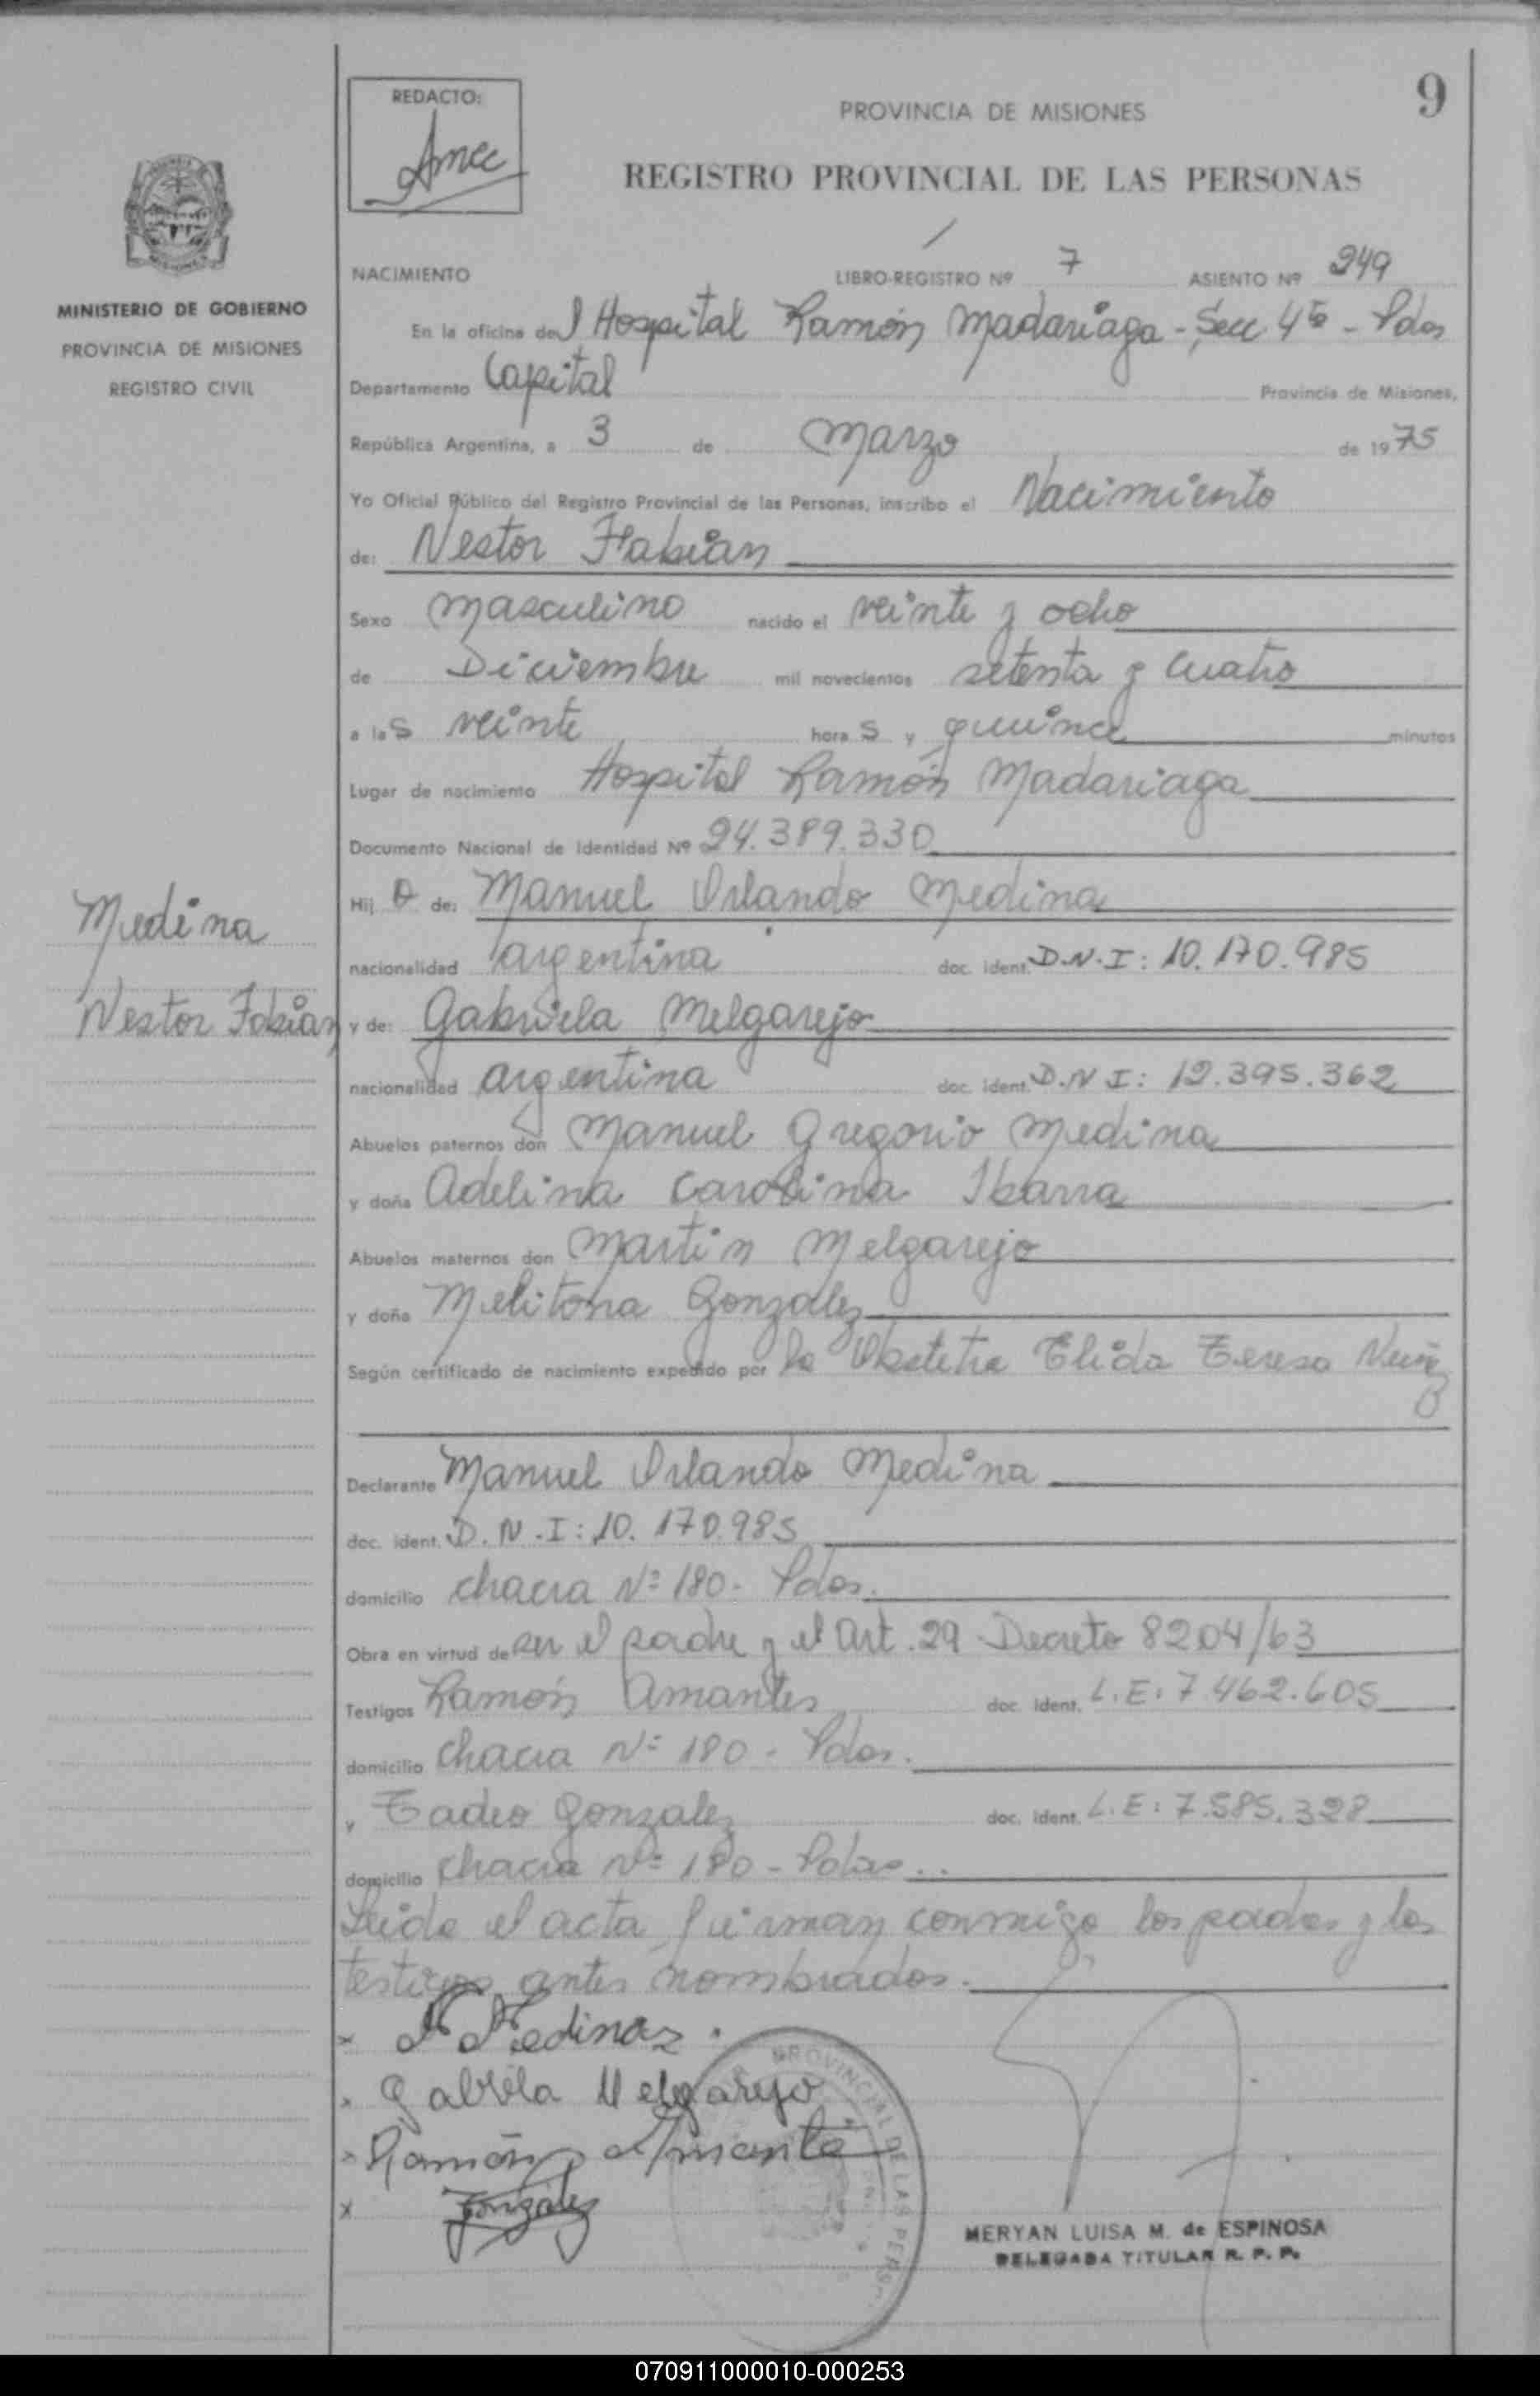 REDACTO:
9
PROVINCIA DE MISIONES
REGISTRO PROVINCIAL DE LAS PERSONAS
MINISTERIO DE GOBIERNO
PROVINCIA DE MISIONES
REGISTRO CIVIL
NACIMIENTO LIBRO-REGISTRO Nº 7 ASIENTO Nº 249
En la oficina del Hospital Ramón Madariaga - Secc 4ta - Pdas
Departamento Capital Provincia de Misiones,
República Argentina, a 3 de Marzo de 1975
Yo Oficial Público del Registro Provincial de las Personas, inscribo el Nacimiento
de: Nestor Fabián
Sexo masculino nacido el veinte y ocho
de Diciembre mil novecientos setenta y cuatro
a las veinte horas y quince minutos
Lugar de nacimiento Hospital Ramón Madariaga
Documento Nacional de Identidad Nº 24.389.330
Hijo de: Manuel Orlando Medina
Medina
nacionalidad argentina doc. ident. D.N.I: 10.170.985
Nestor Fabián
y de: Gabriela Melgarejo
nacionalidad argentina doc. ident. D.N I: 12.395.362
Abuelos paternos don Manuel Gregorio Medina
y doña Adelina Carolina Ibarra
Abuelos maternos don Martin Melgarejo
y doña Melitona Gonzalez
Según certificado de nacimiento expedido por la Obstetra Elida Teresa Nuñez
Declarante Manuel Orlando Medina
doc. ident. D.N.I: 10.170.985
domicilio chacra Nº 180 - Pdas.
Obra en virtud de ser el padre y el Art. 29 Decreto 8204/63
Testigos Ramón Amantes doc. ident. L.E: 7.462.605
domicilio chacra Nº 180 - Pdas.
y Tadeo Gonzalez doc. ident. L.E: 7.585.328
domicilio chacra Nº 180 - Pdas..
Leida el acta, firman conmigo los padres y los
testigos antes nombrados.
x Medina
x Gabriela Melgarejo
x Ramón
x Gonzalez
PROVINCIAL DE LAS PERS
MERYAN LUISA M. de ESPINOSA
DELEGADA TITULAR R. P. P.
070911000010-000253